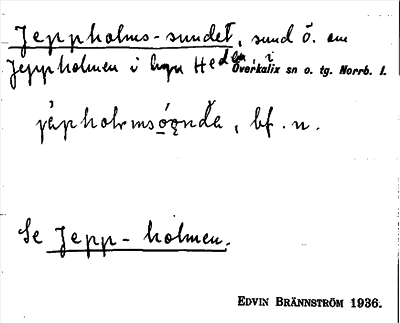 Jeppholms-sundet, sund ö. om
Jeppholmen i byn Heden, i
Överkalix sn o. tg. Norrb. l.
bf. n.
Se Jepp-holmen.
EDVIN BRÄNNSTRÖM 1936.